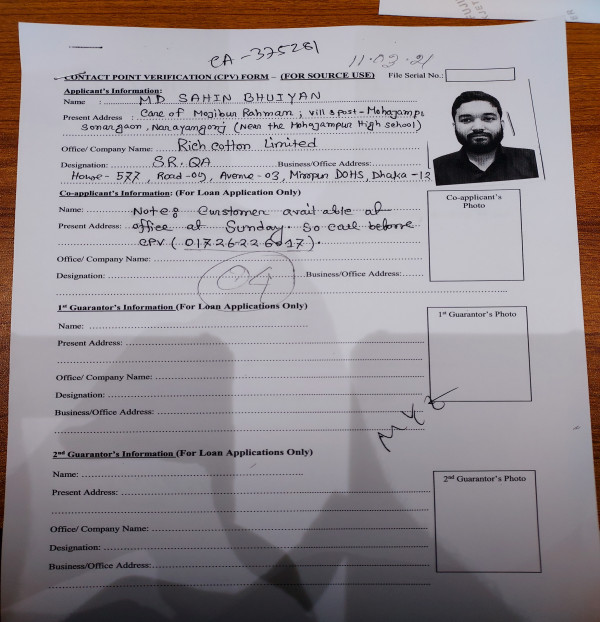 CA-375281
11.03.21
CONTACT POINT VERIFICATION (CPV) FORM – (FOR SOURCE USE) File Serial No.:
Applicant's Information:
Name : MD SAHIN BHUIYAN
Present Address : Care of Mojibur Rahmam, vill & post-Mohajampu
Sonargaon, Narayangonj (Near the Mohajampur High school)
Office/ Company Name: Rich cotton Limited
Designation: SR. QA Business/Office Address:
House-577, Road-09, Avenue-03, Mirpur DOHS, Dhaka-12
Co-applicant's Information: (For Loan Application Only)
Co-applicant's
Photo
Name: Note: Customer available at
Present Address: office at Sunday. So call before
CPV (01726226017).
Office/ Company Name:
04
Designation: Business/Office Address:
1st Guarantor's Information (For Loan Applications Only)
1st Guarantor's Photo
Name:
Present Address:
Office/ Company Name:
Designation:
Business/Office Address:
2nd Guarantor's Information (For Loan Applications Only)
2nd Guarantor's Photo
Name:
Present Address:
Office/ Company Name:
Designation:
Business/Office Address: